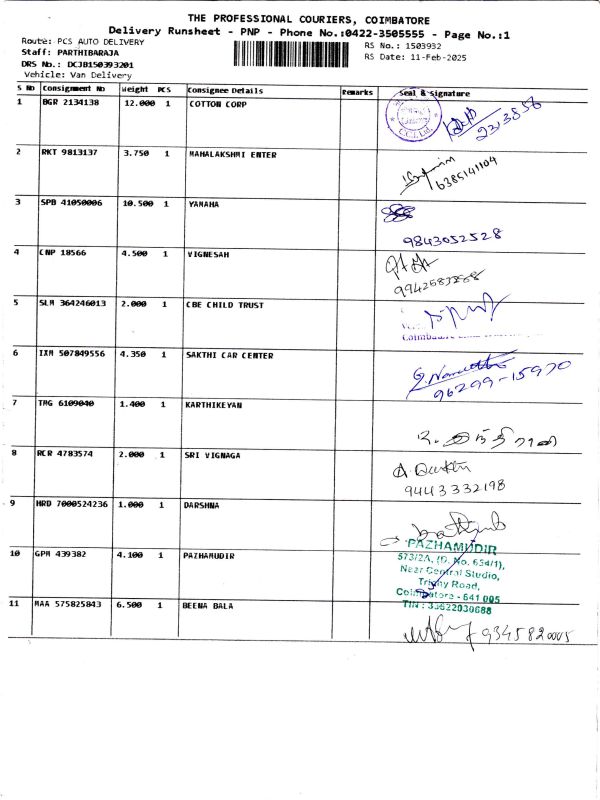 THE PROFESSIONAL COURIERS, COIMBATORE
Delivery Runsheet - PNP - Phone No.:0422-3505555 - Page No.:1
Route: PCS AUTO DELIVERY
Staff: PARTHIBARAJA
DRS No.: DCJB150393201
Vehicle: Van Delivery
RS No.: 1503932
RS Date: 11-Feb-2025
S No Consignment No Weight PCS Consignee Details Remarks Seal & Signature
1 BGR 2134138 12.000 1 COTTON CORP
2 RKT 9813137 3.750 1 MAHALAKSHMI ENTER
6385141104
3 SPB 41050006 10.500 1 YAMAHA
9843052528
4 CNP 18566 4.500 1 VIGNESAH
5 SLM 364246013 2.000 1 CBE CHILD TRUST
6 IXM 507849556 4.350 1 SAKTHI CAR CENTER
96299-15970
7 TMG 6109040 1.400 1 KARTHIKEYAN
8 RCR 4783574 2.000 1 SRI VIGNAGA
9443332198
9 HRD 7000524236 1.000 1 DARSHNA
10 GPM 439382 4.100 1 PAZHAMUDIR
PAZHAMUDIR
573/2A, (D. No. 654/1),
Near Central Studio,
Trichy Road,
Coimbatore - 641 005
TIN : 33622030688
11 MAA 575825843 6.500 1 BEENA BALA